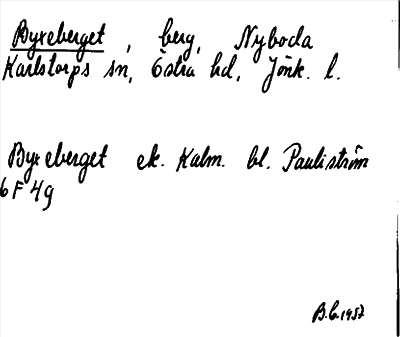 Byxeberget, berg, Nyboda
Karlstorps sn, Östra hd, Jönk. l.
Byxeberget ek. Kalm. bl. Pauliström
6 F 4g
B.G. 1957